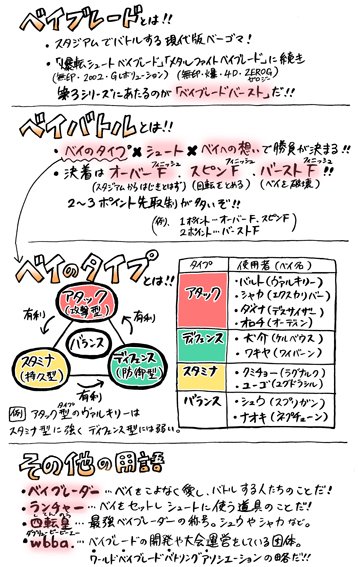 ベイブレードとは!!
・スタジアムでバトルする現代版ベーゴマ!
・「爆転シュートベイブレード」「メタルファイトベイブレード」に続き
(無印・2002・Gレボリューション) (無印・爆・4D・ZEROG)
ゼロジー
第3シリーズにあたるのが「ベイブレードバースト」だ!!
ベイバトルとは!!
・ベイのタイプ×シュート×ベイへの想いで勝負が決まる!!
フィニッシュ フィニッシュ フィニッシュ
・決着はオーバーF、スピンF、バーストF!!
(スタジアムからはじきとばす) (回転をとめる) (ベイを破壊)
2〜3ポイント先取制が多いぞ!!
(例、1ポイント…オーバーF、スピンF
2ポイント…バーストF)
ベイのタイプとは!!
アタック
(攻撃型)
有利
有利
バランス
スタミナ
(持久型)
ディフェンス
(防御型)
有利
タイプ
例 アタック型のヴァルキリーは
スタミナ型に強くディフェンス型には弱い。
タイプ 使用者(ベイ名)
アタック
・バルト(ヴァルキリー)
・シャカ(エクスカリバー)
・ダイナ(デュサイザー)
・オロチ(オーディン)
ディフェンス
・大介(ケルベウス)
・ワキヤ(ワイバーン)
スタミナ
・クミチョー(ラグナルク)
・ユーゴ(ユグドラシル)
バランス
・シュウ(スプリガン)
・ナオキ(ネプチューン)
その他の用語
・ベイブレーダー…ベイをこよなく愛し、バトルする人たちのことだ!
・ランチャー…ベイをセットしシュートに使う道具のことだ!
・四転皇…最強ベイブレーダーの称号。シュウやシャカなど。
ダブリュービービーエー
・wbba.…ベイブレードの開発や大会運営をしている団体。
ワールドベイブレードバトリングアソシエーションの略だ!!